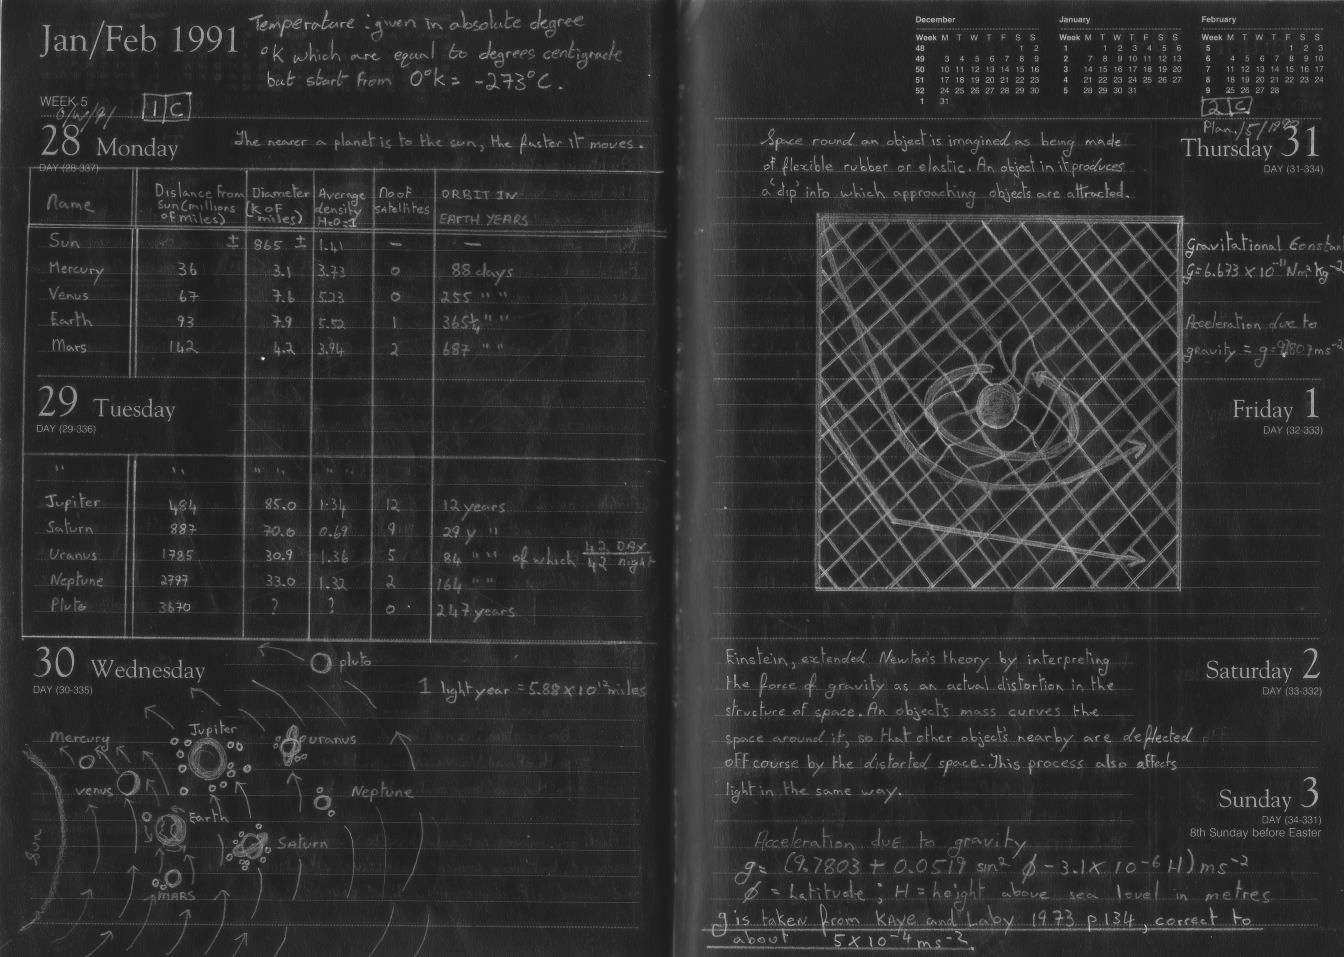 Jan/Feb 1991
Temperature : given in absolute degree
°K which are equal to degrees centigrade
but start from 0°K = -273°C.
WEEK 5
1 C
28 Monday
DAY (28-337)
The nearer a planet is to the sun, the faster it moves.
Name | Distance from Sun (millions of miles) | Diameter (K of miles) | Average density H2O=1 | No of satellites | ORBIT IN EARTH YEARS
Sun ± 865 ± 1.41 – –
Mercury 36 3.1 3.73 0 88 days
Venus 67 7.6 5.23 0 255 " "
Earth 93 7.9 5.52 1 365¼ " "
Mars 142 4.2 3.94 2 687 " "
29 Tuesday
DAY (29-336)
" " " " " " "
Jupiter 484 85.0 1.34 12 12 years
Saturn 887 70.6 0.69 9 29 y "
Uranus 1785 30.9 1.36 5 84 " " of which 42 DAY
42 night
Neptune 2797 33.0 1.32 2 164 " "
Pluto 3670 ? ? 0 247 years
30 Wednesday
DAY (30-335)
pluto
1 light year = 5.88 x 10¹² miles
Mercury
Jupiter
uranus
venus
Neptune
Earth
Sun
Saturn
MARS
December
Week M T W T F S S
48 1 2
49 3 4 5 6 7 8 9
50 10 11 12 13 14 15 16
51 17 18 19 20 21 22 23
52 24 25 26 27 28 29 30
1 31
January
Week M T W T F S S
1 1 2 3 4 5 6
2 7 8 9 10 11 12 13
3 14 15 16 17 18 19 20
4 21 22 23 24 25 26 27
5 28 29 30 31
February
Week M T W T F S S
5 1 2 3
6 4 5 6 7 8 9 10
7 11 12 13 14 15 16 17
8 18 19 20 21 22 23 24
9 25 26 27 28
2 C
Thursday 31
DAY (31-334)
Space round an object is imagined as being made
of flexible rubber or elastic. An object in it produces
a 'dip' into which approaching objects are attracted.
Gravitational Constan
G=6.673 x 10⁻¹¹ Nm² Kg⁻²
Acceleration due to
gravity = g=9.807ms⁻²
Friday 1
DAY (32-333)
Saturday 2
DAY (33-332)
Einstein, extended Newton's theory by interpreting
the force of gravity as an actual distortion in the
structure of space. An object's mass curves the
space around it, so that other objects nearby are deflected
off course by the distorted space. This process also affects
light in the same way.
Sunday 3
DAY (34-331)
8th Sunday before Easter
Acceleration due to gravity
g= (9.7803 + 0.0519 sin² φ - 3.1 x 10⁻⁶ H) ms⁻²
φ = Latitude ; H = height above sea level in metres
g is taken from KAye and Laby 1973 p.134, correct to
about 5 x 10⁻⁴ ms⁻².